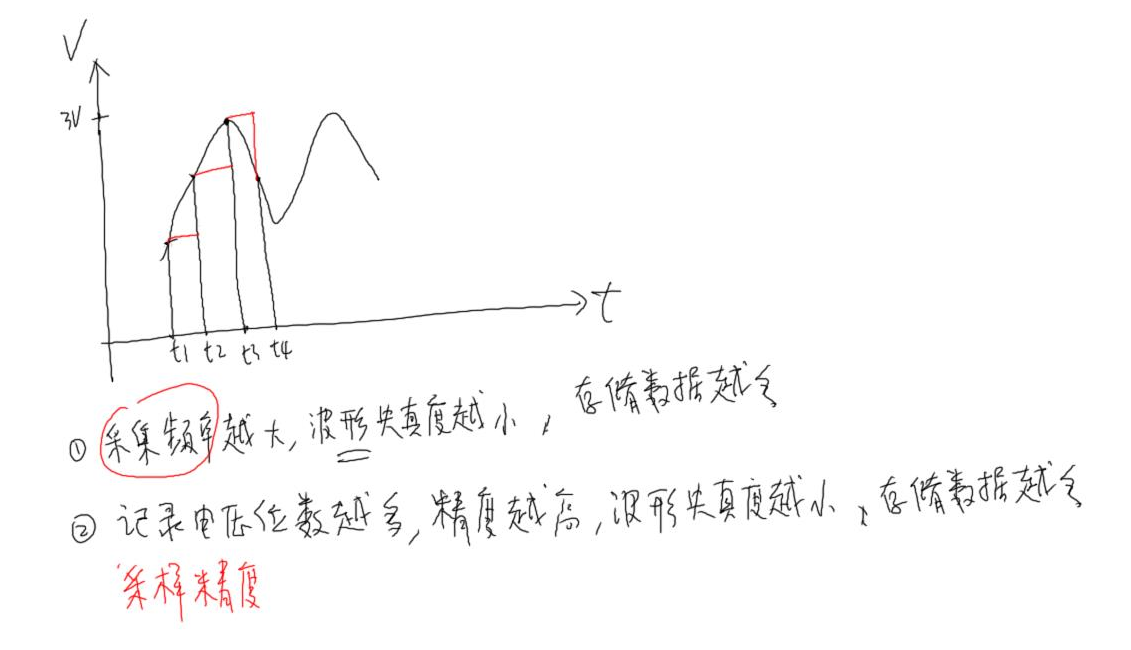 V
3V
t
t1 t2 t3 t4
① 采集频率越大,波形失真度越小,存储数据越多
② 记录电压位数越多,精度越高,波形失真度越小,存储数据越多
采样精度